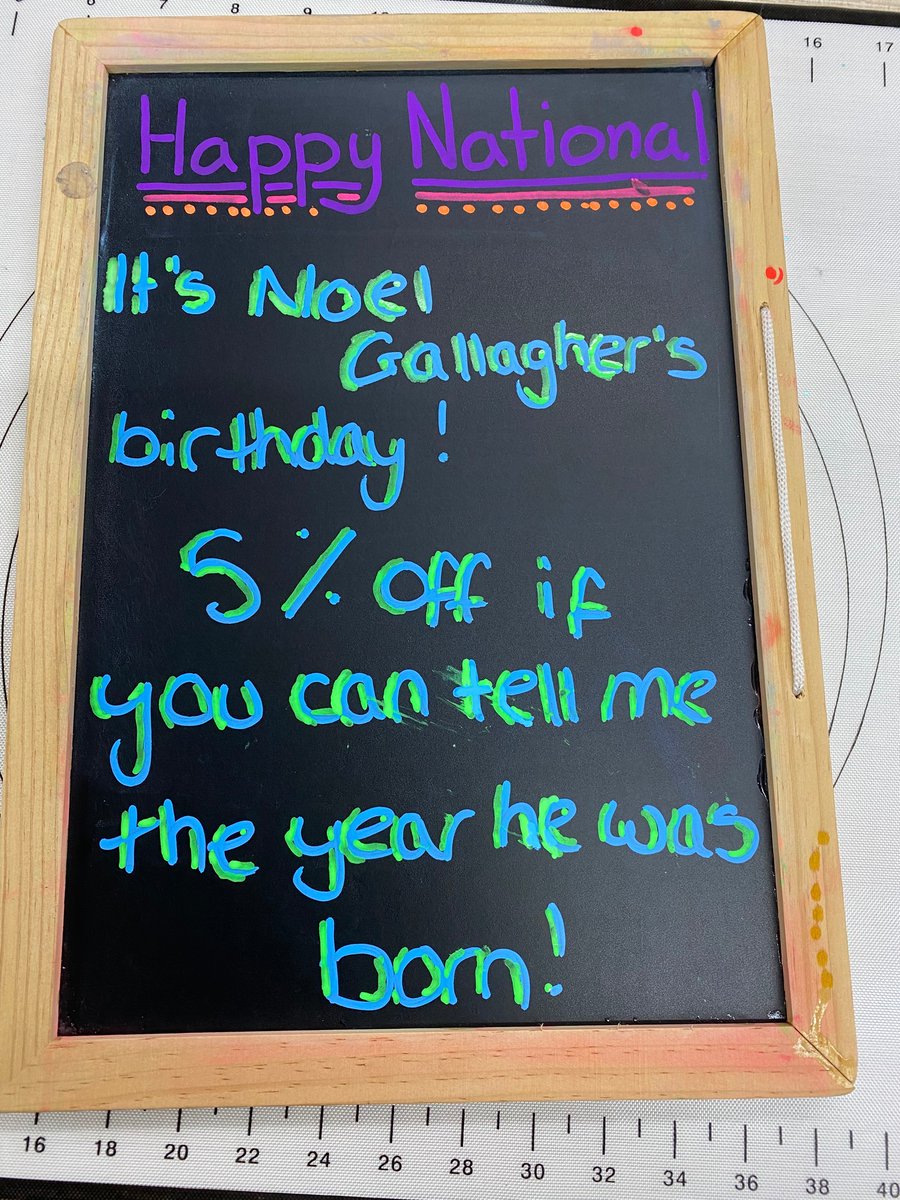 6 7 8 9 10 16 17
Happy National
It's Noel
Gallagher's
birthday!
5% off if
you can tell me
the year he was
born!
16 18 20 22 24 26 28 30 32 34 36 38 40